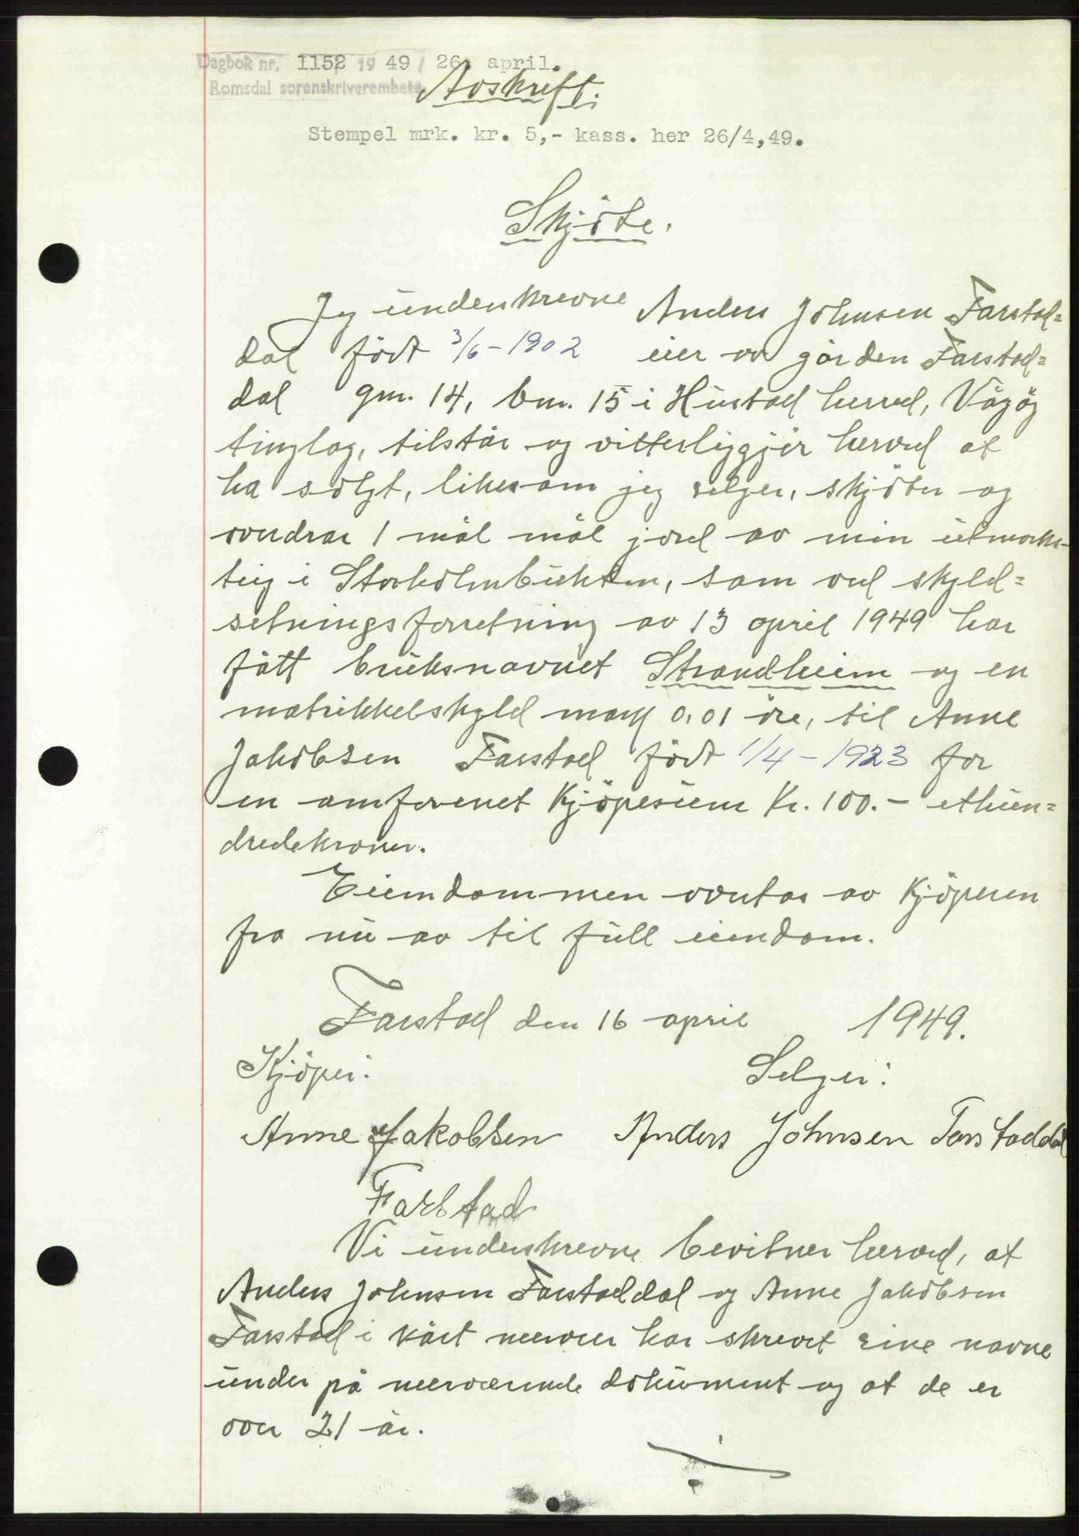 Dagbok nr. 1152 19 49 / 26. april.
Romsdal sorenskriverembete
Avskrift.
Stempel mrk. kr. 5,- kass. her 26/4,49.
Skjöte.
Jeg underskrevne Anders Johnsen Farstad=
dal född 3/6-1902 eier av gården Farstad=
dal gnr. 14, bnr. 15 i Hustad herred, Vågöy
tinglag, tilstår og vitterliggjör herved at
ha solgt, likesom jeg selger, skjöter og
overdrar 1 mål mål jord av min utmarks-
teig i Storholmbukten, som ved skyld=
setningsforretning av 13 april 1949 har
fått bruksnavnet Strandheim og en
matrikkelskyld mark 0,01 öre, til Anne
Jakobsen Farstad född 1/4-1923 for
en omforenet Kjöpesum Kr. 100.- ethun=
dredekroner.
Eiendommen overtas av Kjöperen
fra nu av til full eiendom.
Farstad den 16 april 1949.
Kjöper: Selger:
Anne Jakobsen Anders Johnsen Farstaddal
Farstad
Vi underskrevne bevitner herved, at
Anders Johnsen Farstaddal og Anne Jakobsen
Farstad i vårt nærvær har skrevet sine navne
under på nærværende dokument og at de er
over 21 år.